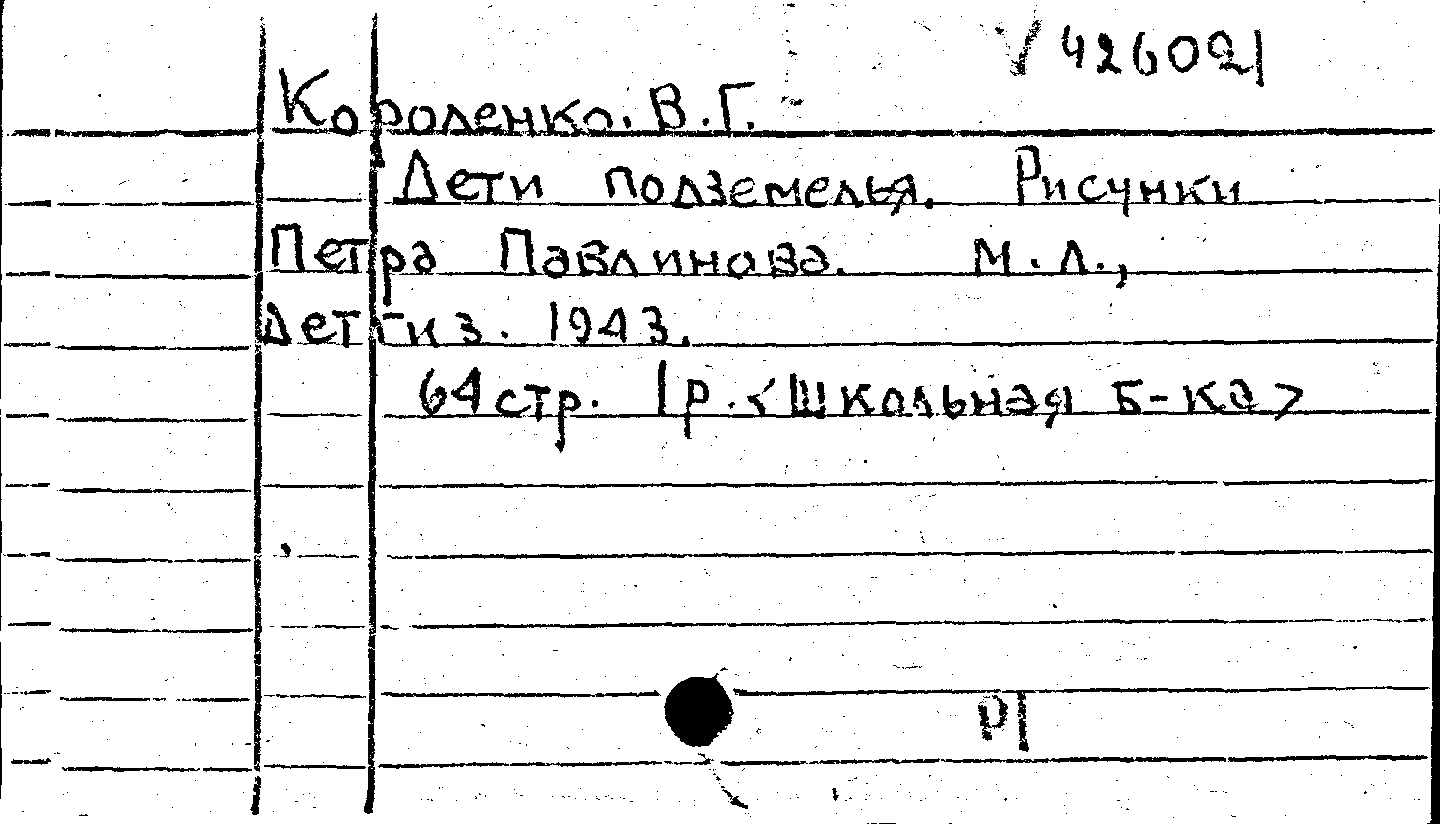 √ 426021
Короленко. В.Г.
Дети подземелья. Рисунки
Петра Павлинова. М.Л.,
Детгиз. 1943.
64 стр. 1р. <Школьная б-ка>
р1